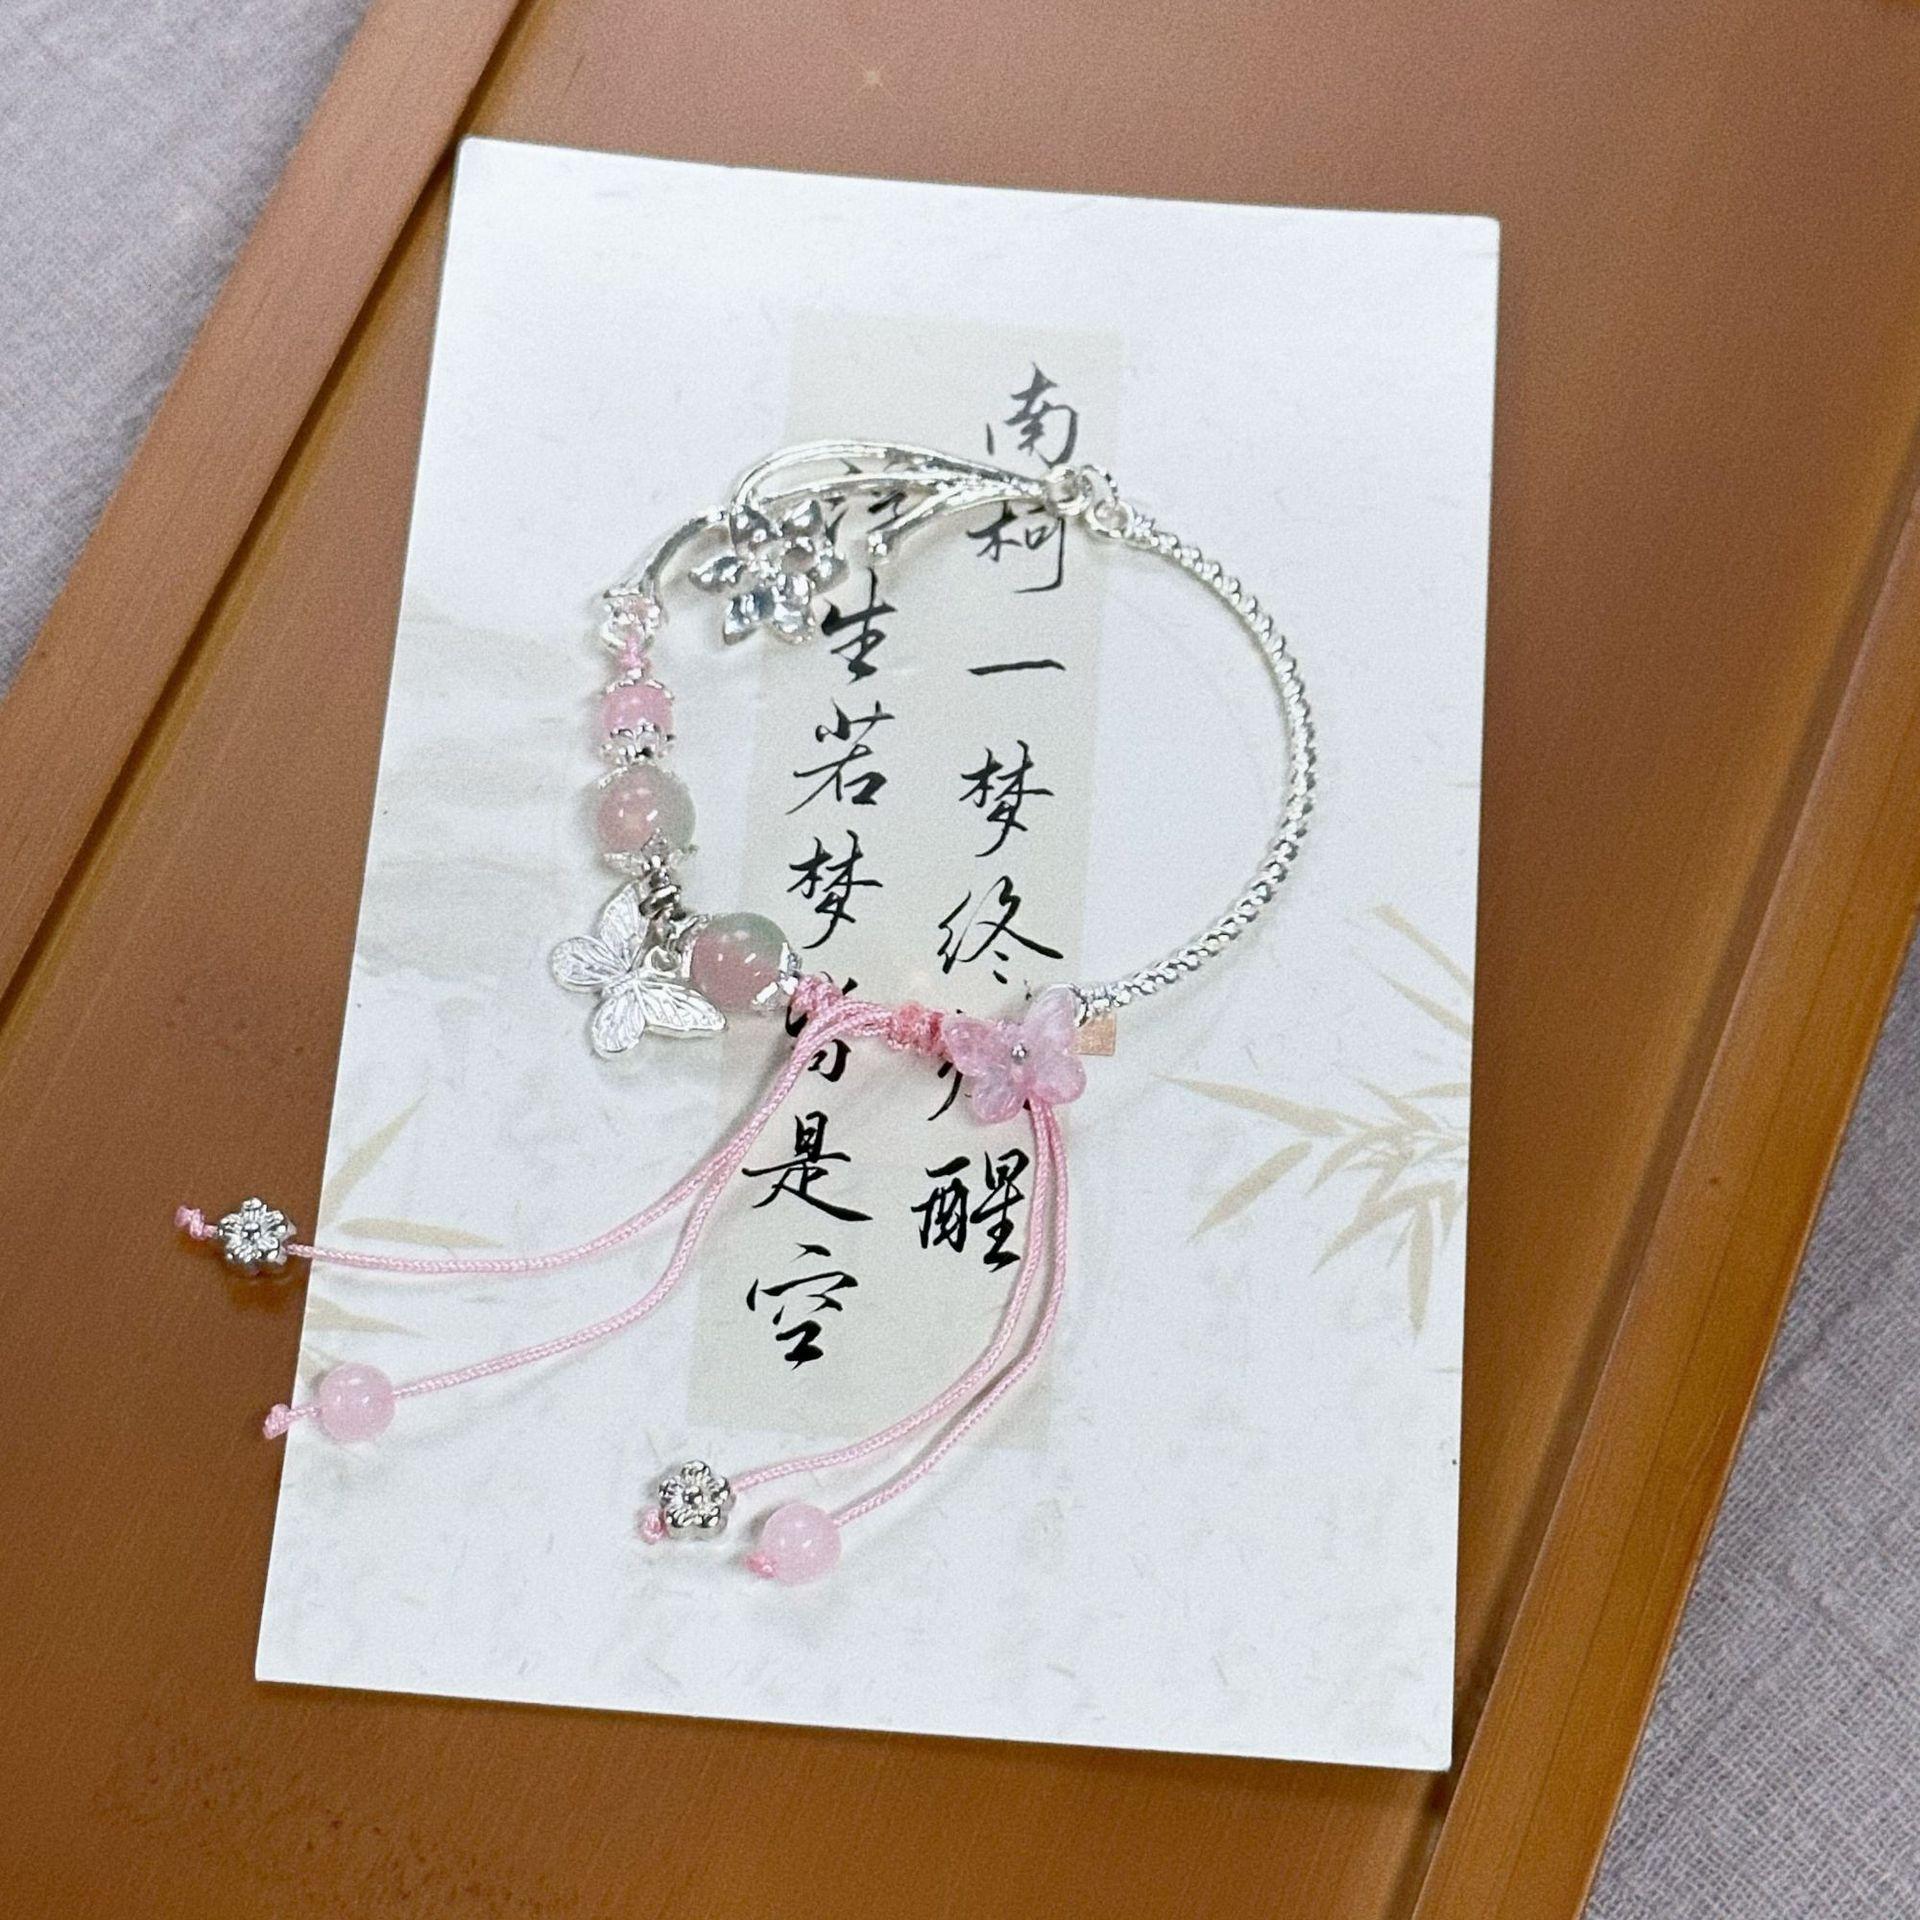 南柯一梦终醒
浮生若梦皆是空